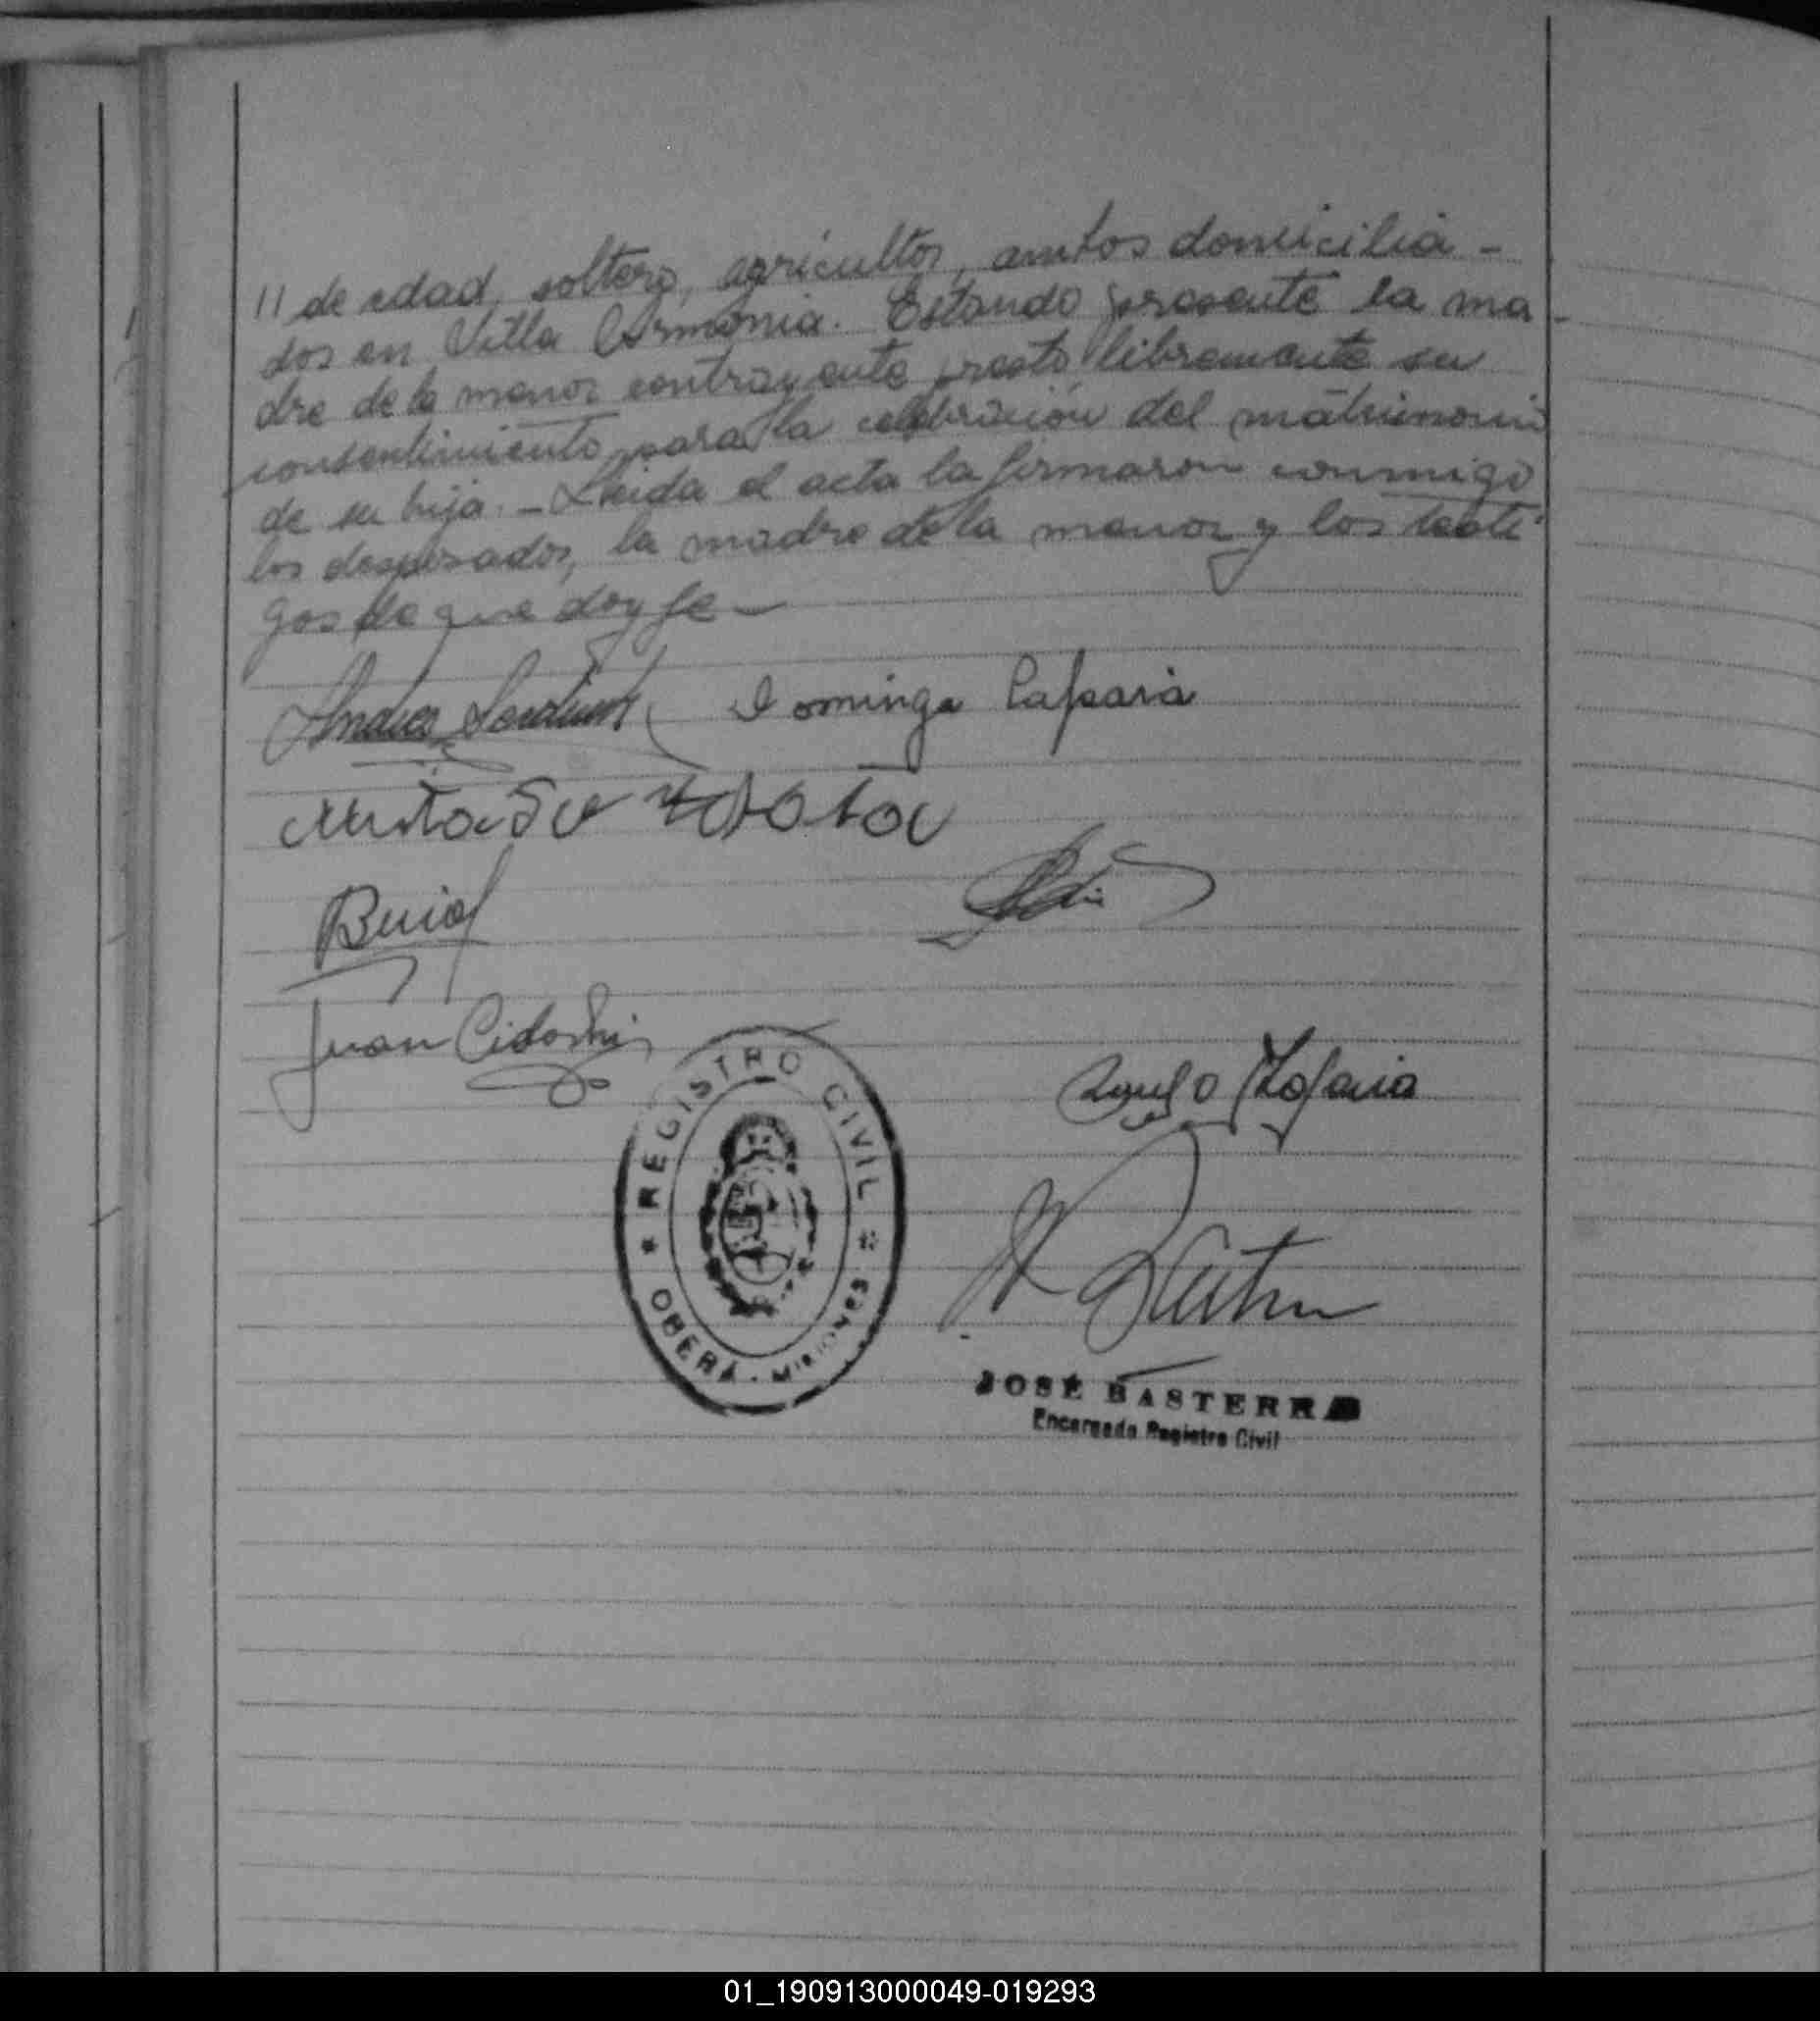 11 de edad, soltero, agricultor, ambos domicilia-
dos en Villa Armonia. Estando presente la ma-
dre de la menor contrayente prestó libremente su
consentimiento para la celebración del matrimonio
de su hija. - Leida el acta la firmaron conmigo
los desposados, la madre de la menor y los testi-
gos de que doy fe -
Andres Dominga
Juan
REGISTRO CIVIL
* OBERÁ - MISIONES *
JOSÉ BASTERRA
Encargado Registro Civil
01_190913000049-019293